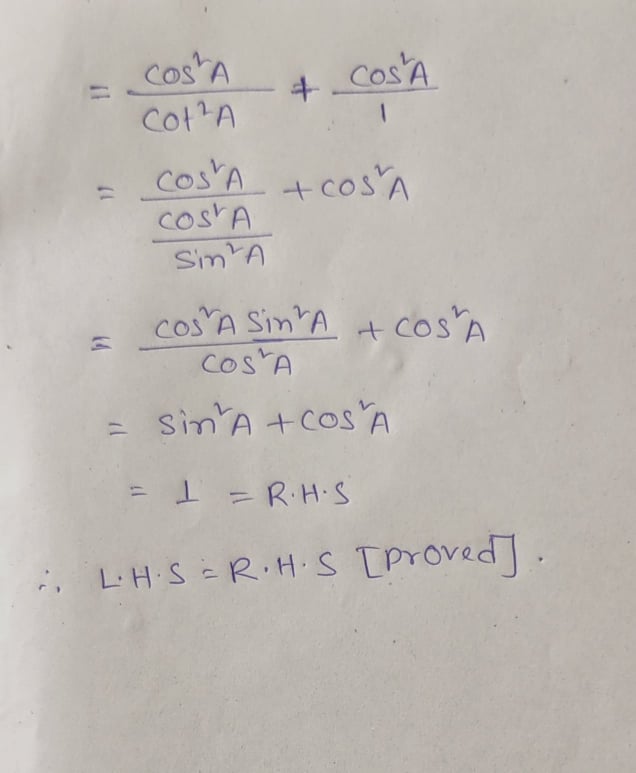 = cos²A / cot²A + cos²A / 1
= cos²A / (cos²A / sin²A) + cos²A
= cos²A sin²A / cos²A + cos²A
= sin²A + cos²A
= 1 = R.H.S
∴ L.H.S = R.H.S [proved].